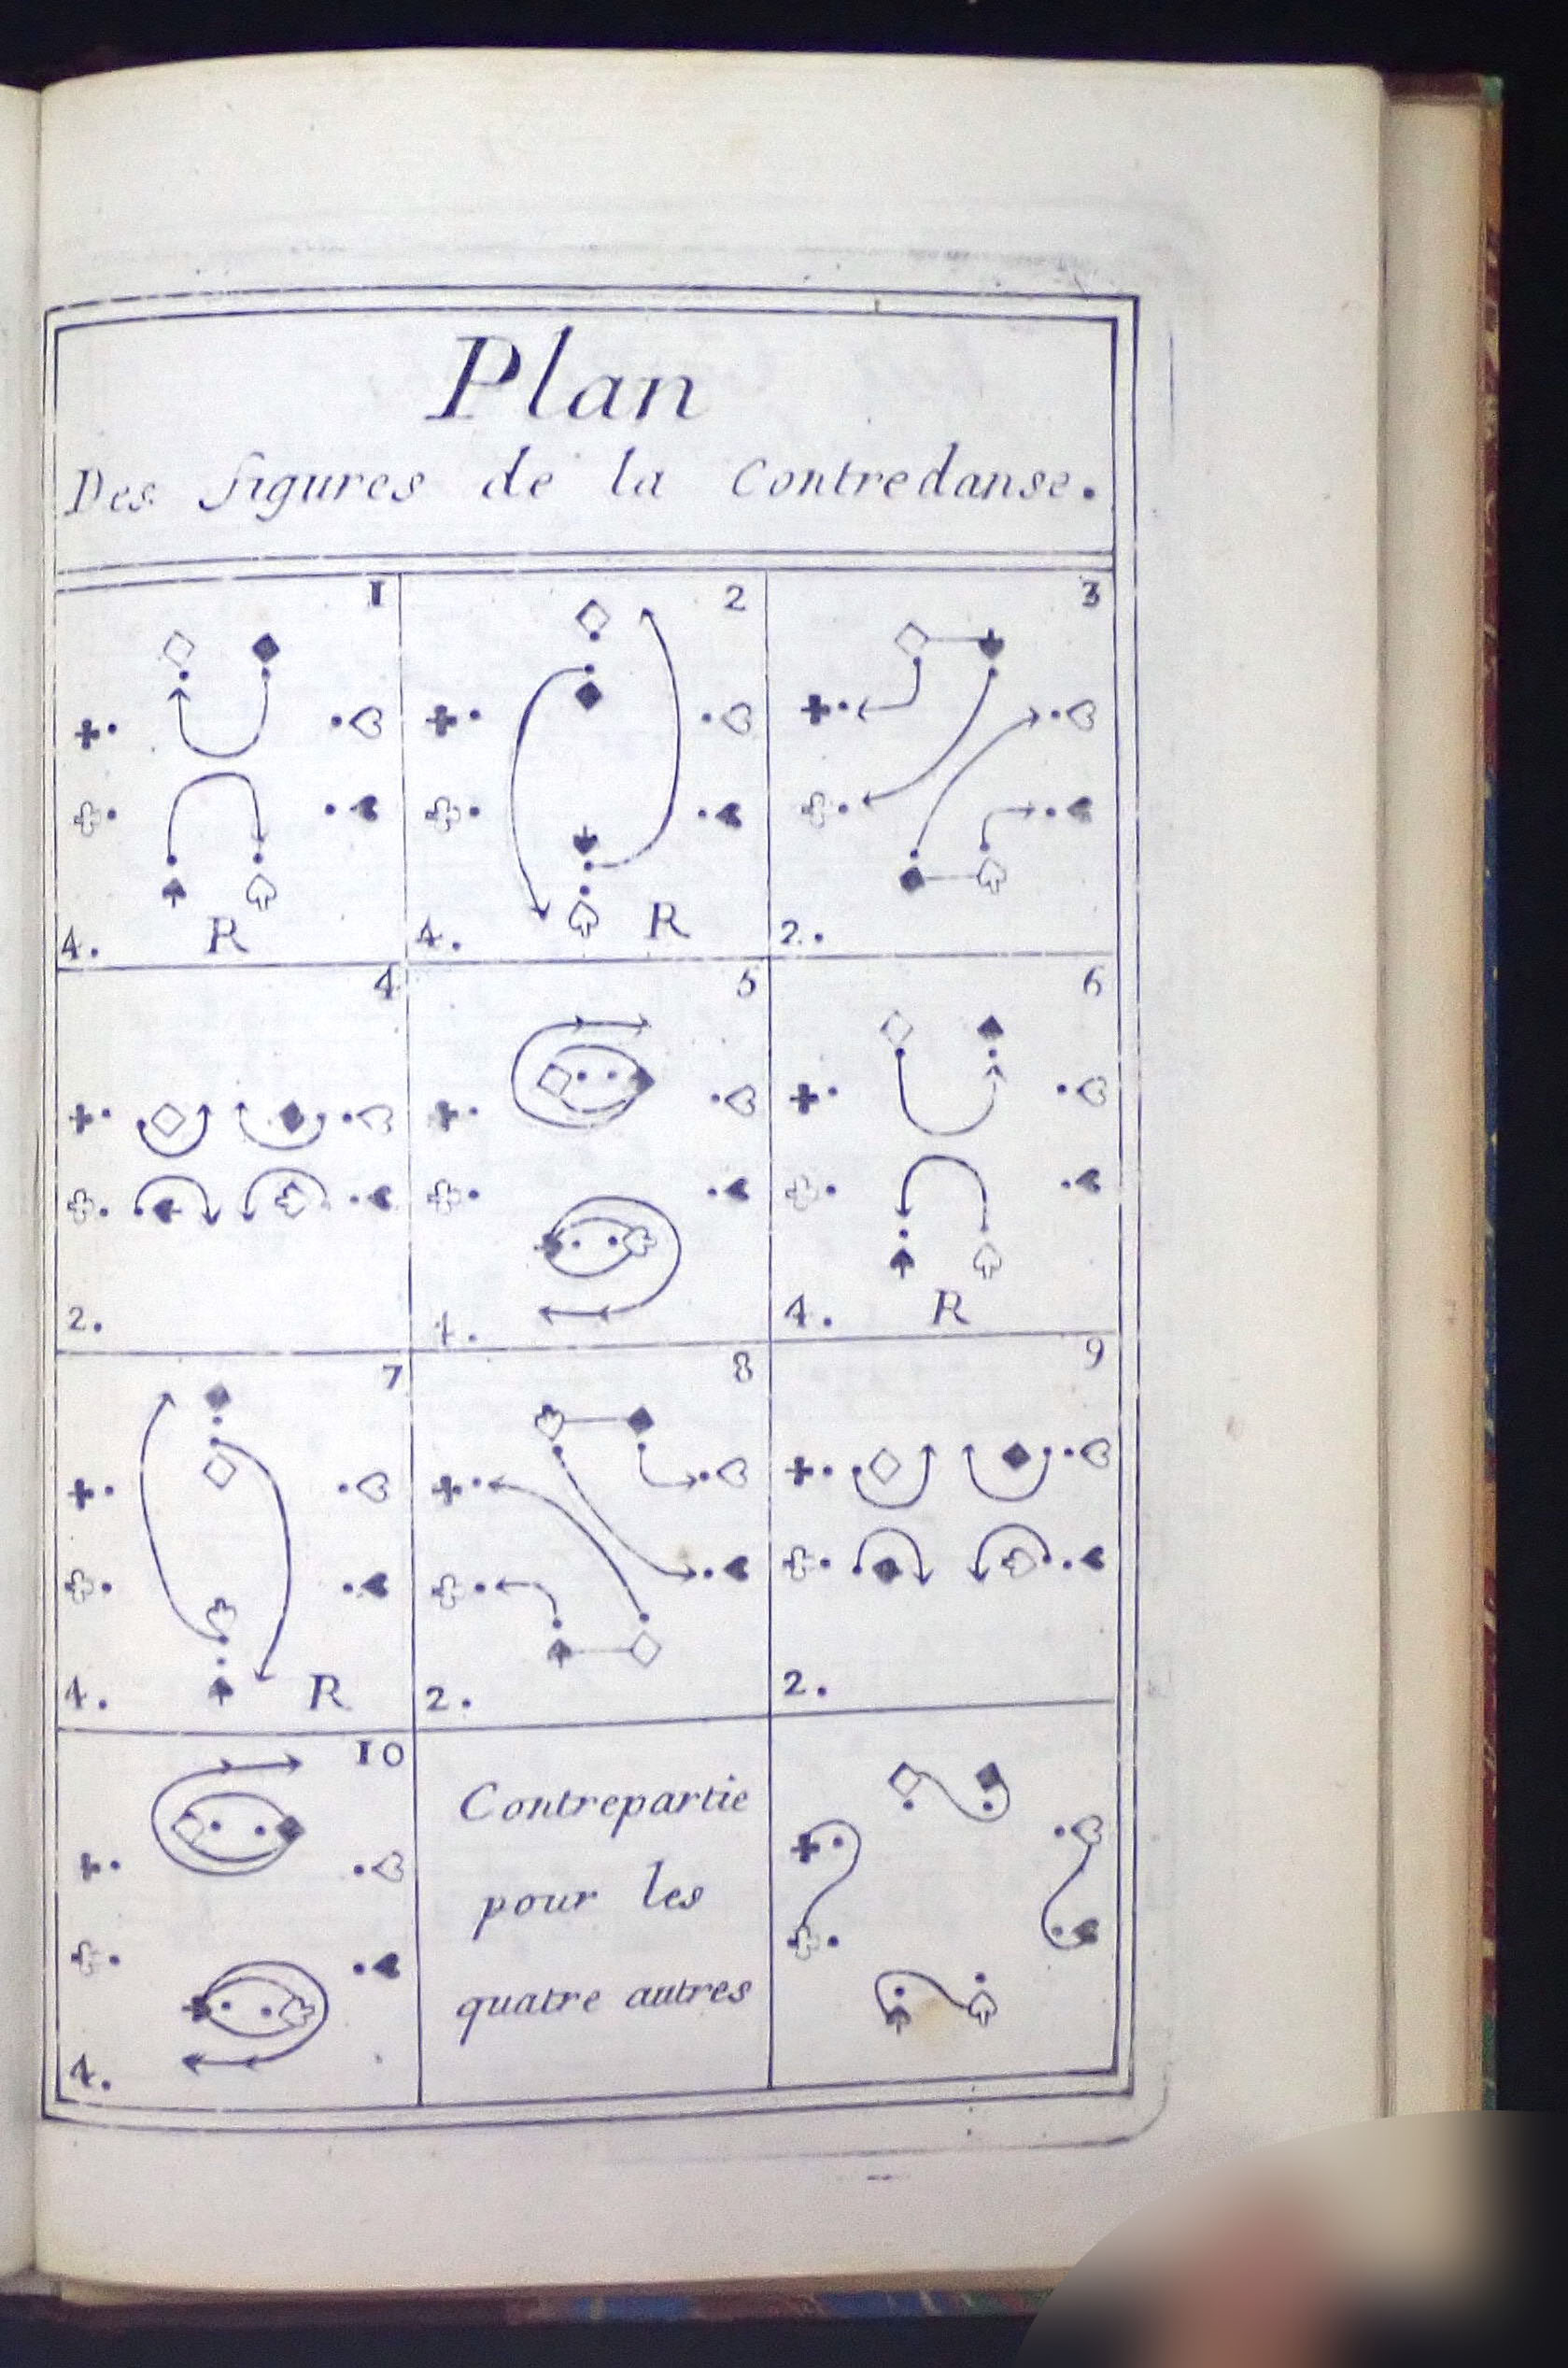 Plan
Des figures de la Contredanse.
1
4. R
2
4. R
3
2.
4
2.
5
4.
6
4. R
7
4. R
8
2.
9
2.
10
4.
Contrepartie
pour les
quatre autres